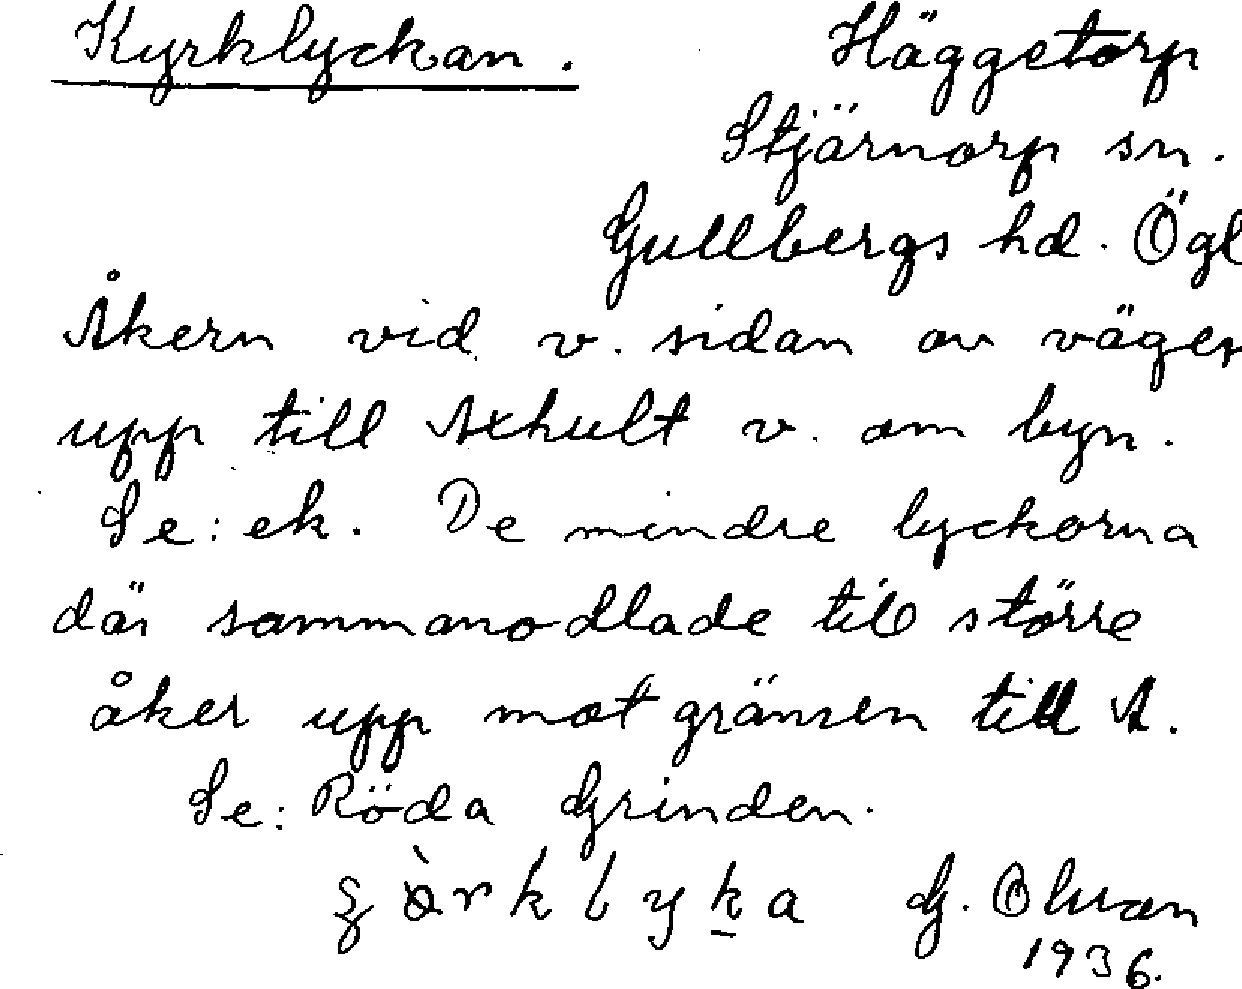 Kyrklyckan. Häggetorp
Stjärnorp sn.
Gullbergs hd. Ögl
Åkern vid v. sidan av vägen
upp till Axhult v. om byn.
Se: ek. De mindre lyckorna
där sammanodlade till större
åker upp mot gränsen till A.
Se: Röda Grinden.
G.
1936.